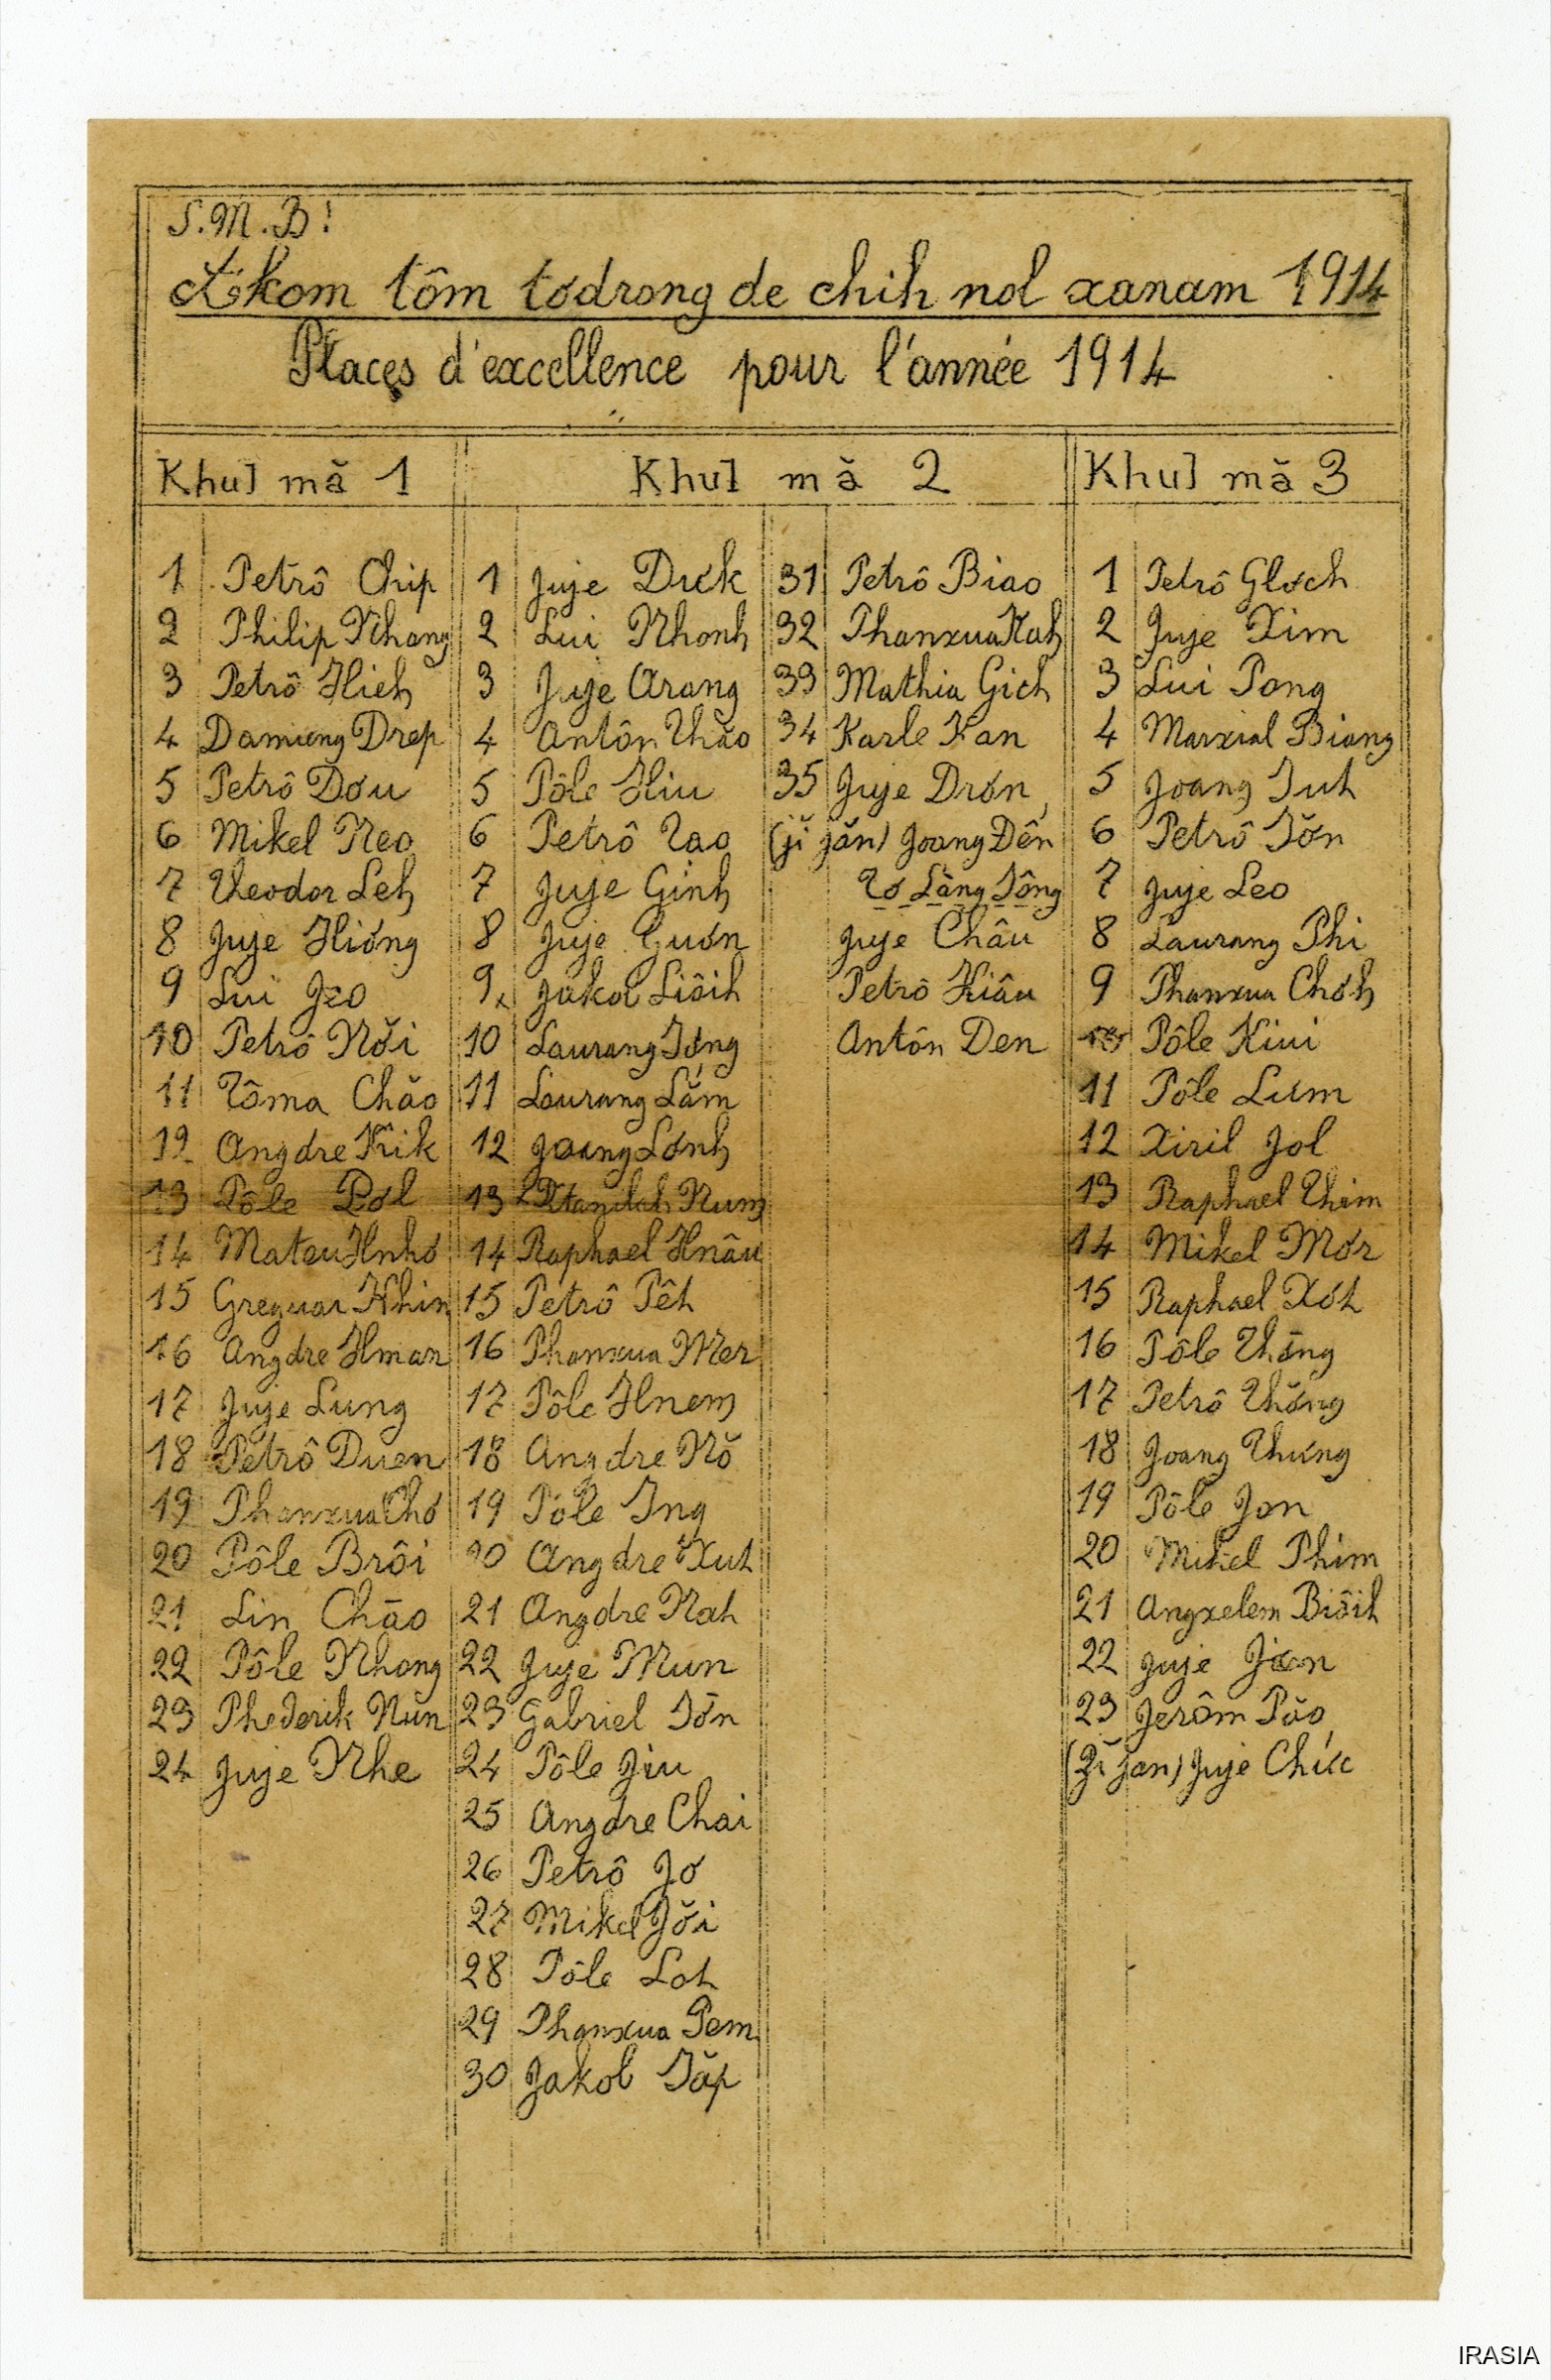 S.M.B!
Akom tôm tơdrong de chih nol xanam 1914
Places d'excellence pour l'année 1914
Khul mă 1
1 Petrô Chip
2 Philip Nhang
3 Petrô Hieh
4 Damieng Drep
5 Petrô Dơu
6 Mikel Neo
7 Theodor Leh
8 Juje Hiơng
9 Lui Jeo
10 Petrô Nơ̆i
11 Tôma Chăo
12 Angdre Kik
13 Pôle Pơl
14 Mateu Hnhơ
15 Greguar Hhin
16 Angdre Hman
17 Juje Lung
18 Petrô Duen
19 Phanxua Chơ
20 Pôle Brôi
21 Lin Chāo
22 Pôle Nhong
23 Phederik Nŭn
24 Juje Nhe
Khul mă 2
1 Juje Dưk
2 Lui Nhonh
3 Juje Arang
4 Antôn Thăo
5 Pôle Hiu
6 Petrô Tao
7 Juje Ginh
8 Juje Guơn
9 Jakob Liôih
10 Laurang Iơng
11 Laurang Lăm
12 Joang Lơnh
13 Num
14 Raphael Hnâu
15 Petrô Pêt
16 Phanxua Mer
17 Pôle Hnem
18 Angdre Nŏ
19 Pôle Ing
20 Angdre Xut
21 Angdre Nah
22 Juje Mun
23 Gabriel Iōn
24 Pôle Jiu
25 Angdre Chai
26 Petrô Jơ
27 Mikel Jơ̆i
28 Pôle Lot
29 Phanxua Pem
30 Jakob Iăp
31 Petrô Biao
32 Phanxua Kah
33 Mathia Gich
34 Karle Kan
35 Juje Drơn
(jĭ jăn) Joang Đên
Tơ Làng Sông
Juje Châu
Petrô Hiâu
Antôn Den
Khul mă 3
1 Petrô Glơch
2 Juje Xim
3 Lui Pong
4 Marxial Biang
5 Joang Iut
6 Petrô Iơ̆n
7 Juje Leo
8 Laurang Phi
9 Phanxua Chơh
10 Pôle Kiui
11 Pôle Lưm
12 Xiril Jol
13 Raphael Thim
14 Mikel Mơr
15 Raphael Xơt
16 Pôle Thōng
17 Petrô Thơ̆ng
18 Joang Thưng
19 Pôle Jon
20 Mikel Phim
21 Angxelem Biôih
22 Juje
23 Jerôm Păo
(jĭ jan) Juje Chưc
IRASIA